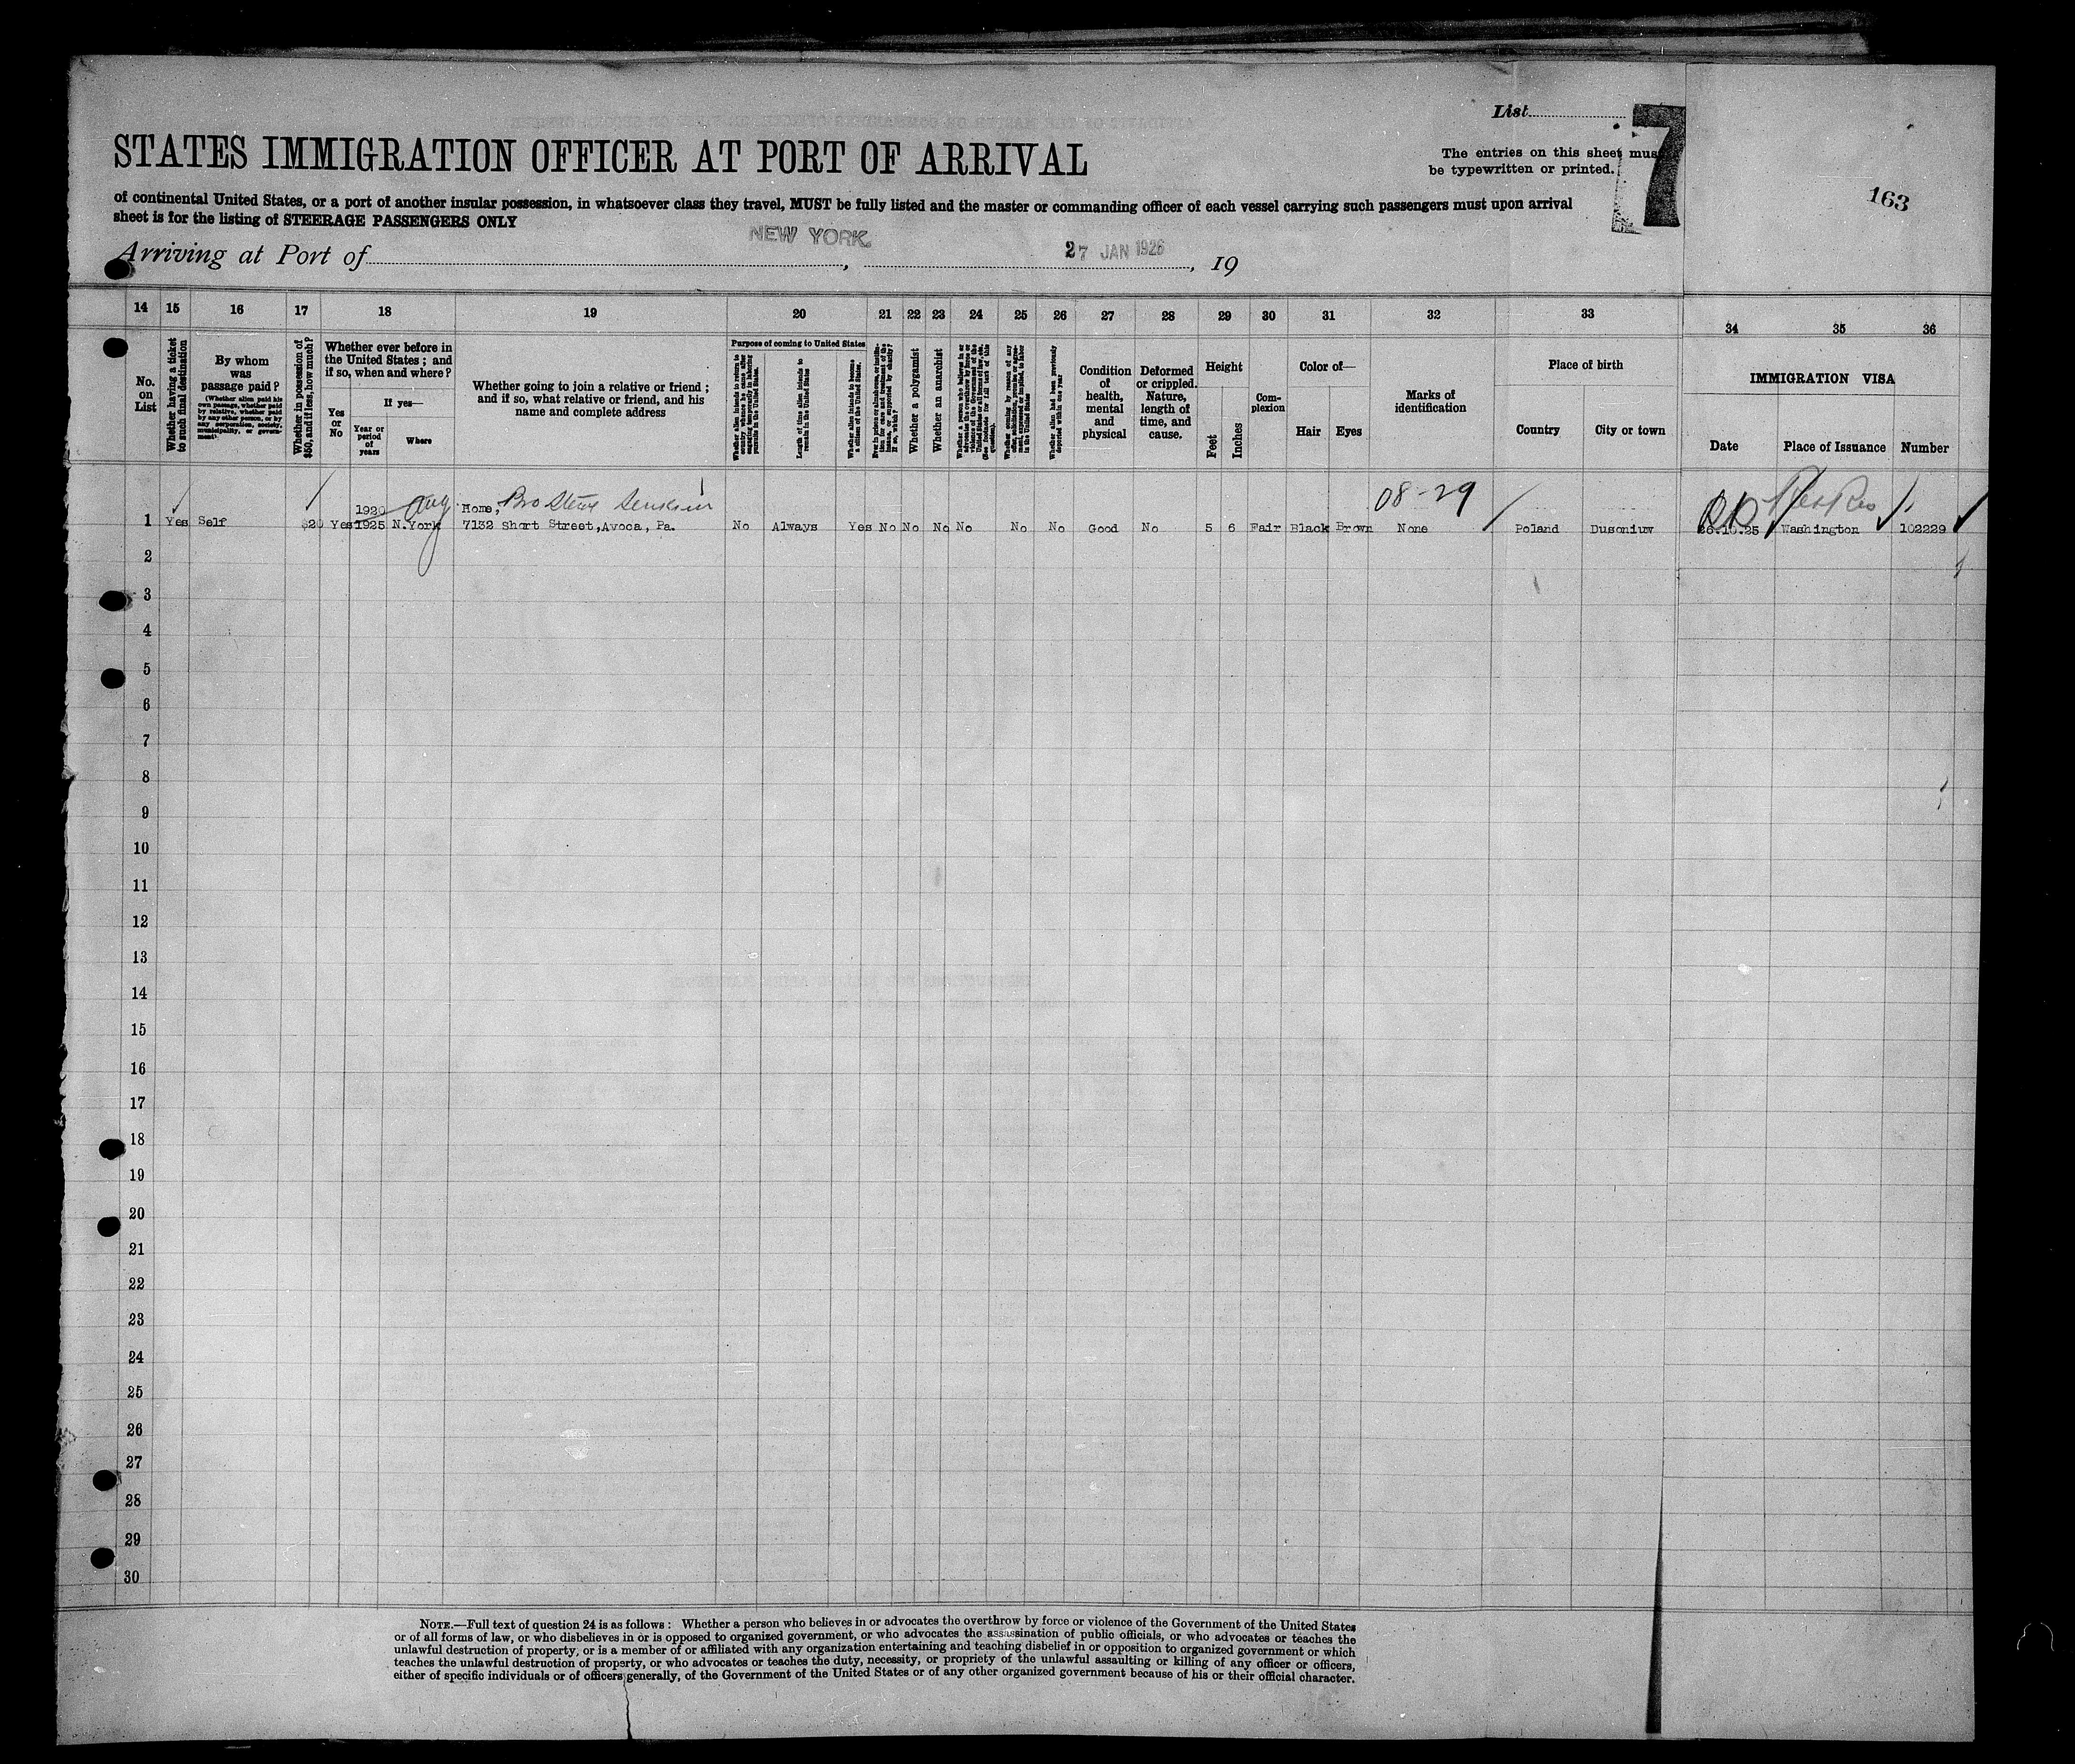 List
7
The entries on this sheet must
be typewritten or printed.
163
STATES IMMIGRATION OFFICER AT PORT OF ARRIVAL
of continental United States, or a port of another insular possession, in whatsoever class they travel, MUST be fully listed and the master or commanding officer of each vessel carrying such passengers must upon arrival
sheet is for the listing of STEERAGE PASSENGERS ONLY
Arriving at Port of NEW YORK, 27 JAN 1926, 19
14 15 16 17 18 19 20 21 22 23 24 25 26 27 28 29 30 31 32 33 34 35 36
No. on List
Whether having a ticket to such final destination
By whom was passage paid?
(Whether alien paid his own passage, whether paid by relative, whether paid by any other person, or by any corporation, society, municipality, or government)
Whether in possession of $50, and if less, how much?
Whether ever before in the United States; and if so, when and where?
Yes or No
If yes—
Year or period of years
Where
Whether going to join a relative or friend; and if so, what relative or friend, and his name and complete address
Purpose of coming to United States
Whether alien intends to return to country whence he came after engaging temporarily in laboring pursuits in the United States.
Length of time alien intends to remain in the United States
Whether alien intends to become a citizen of the United States.
Ever in prison or almshouse, or institution for care and treatment of the insane, or supported by charity? If so, which?
Whether a polygamist
Whether an anarchist
Whether coming by reason of any offer, solicitation, promise or agreement, expressed or implied, to labor in the United States
Whether alien had been previously deported within one year
Condition of health, mental and physical
Deformed or crippled. Nature, length of time, and cause.
Height
Feet
Inches
Complexion
Color of—
Hair
Eyes
Marks of identification
Place of birth
Country
City or town
IMMIGRATION VISA
Date
Place of Issuance
Number
1920 Aug Home, Bro 08-29
1 Yes Self $20 Yes 1925 N.York 7132 Short Street, Avoca, Pa. No Always Yes No No No No No No Good No 5 6 Fair Black Brown None Poland Dusoniuw 26.10.25 Washington 102229
2
3
4
5
6
7
8
9
10
11
12
13
14
15
16
17
18
19
20
21
22
23
24
25
26
27
28
29
30
NOTE.—Full text of question 24 is as follows: Whether a person who believes in or advocates the overthrow by force or violence of the Government of the United States
or of all forms of law, or who disbelieves in or is opposed to organized government, or who advocates the assassination of public officials, or who advocates or teaches the
unlawful destruction of property, or is a member of or affiliated with any organization entertaining and teaching disbelief in or opposition to organized government or which
teaches the unlawful destruction of property, or who advocates or teaches the duty, necessity, or propriety of the unlawful assaulting or killing of any officer or officers,
either of specific individuals or of officers generally, of the Government of the United States or of any other organized government because of his or their official character.